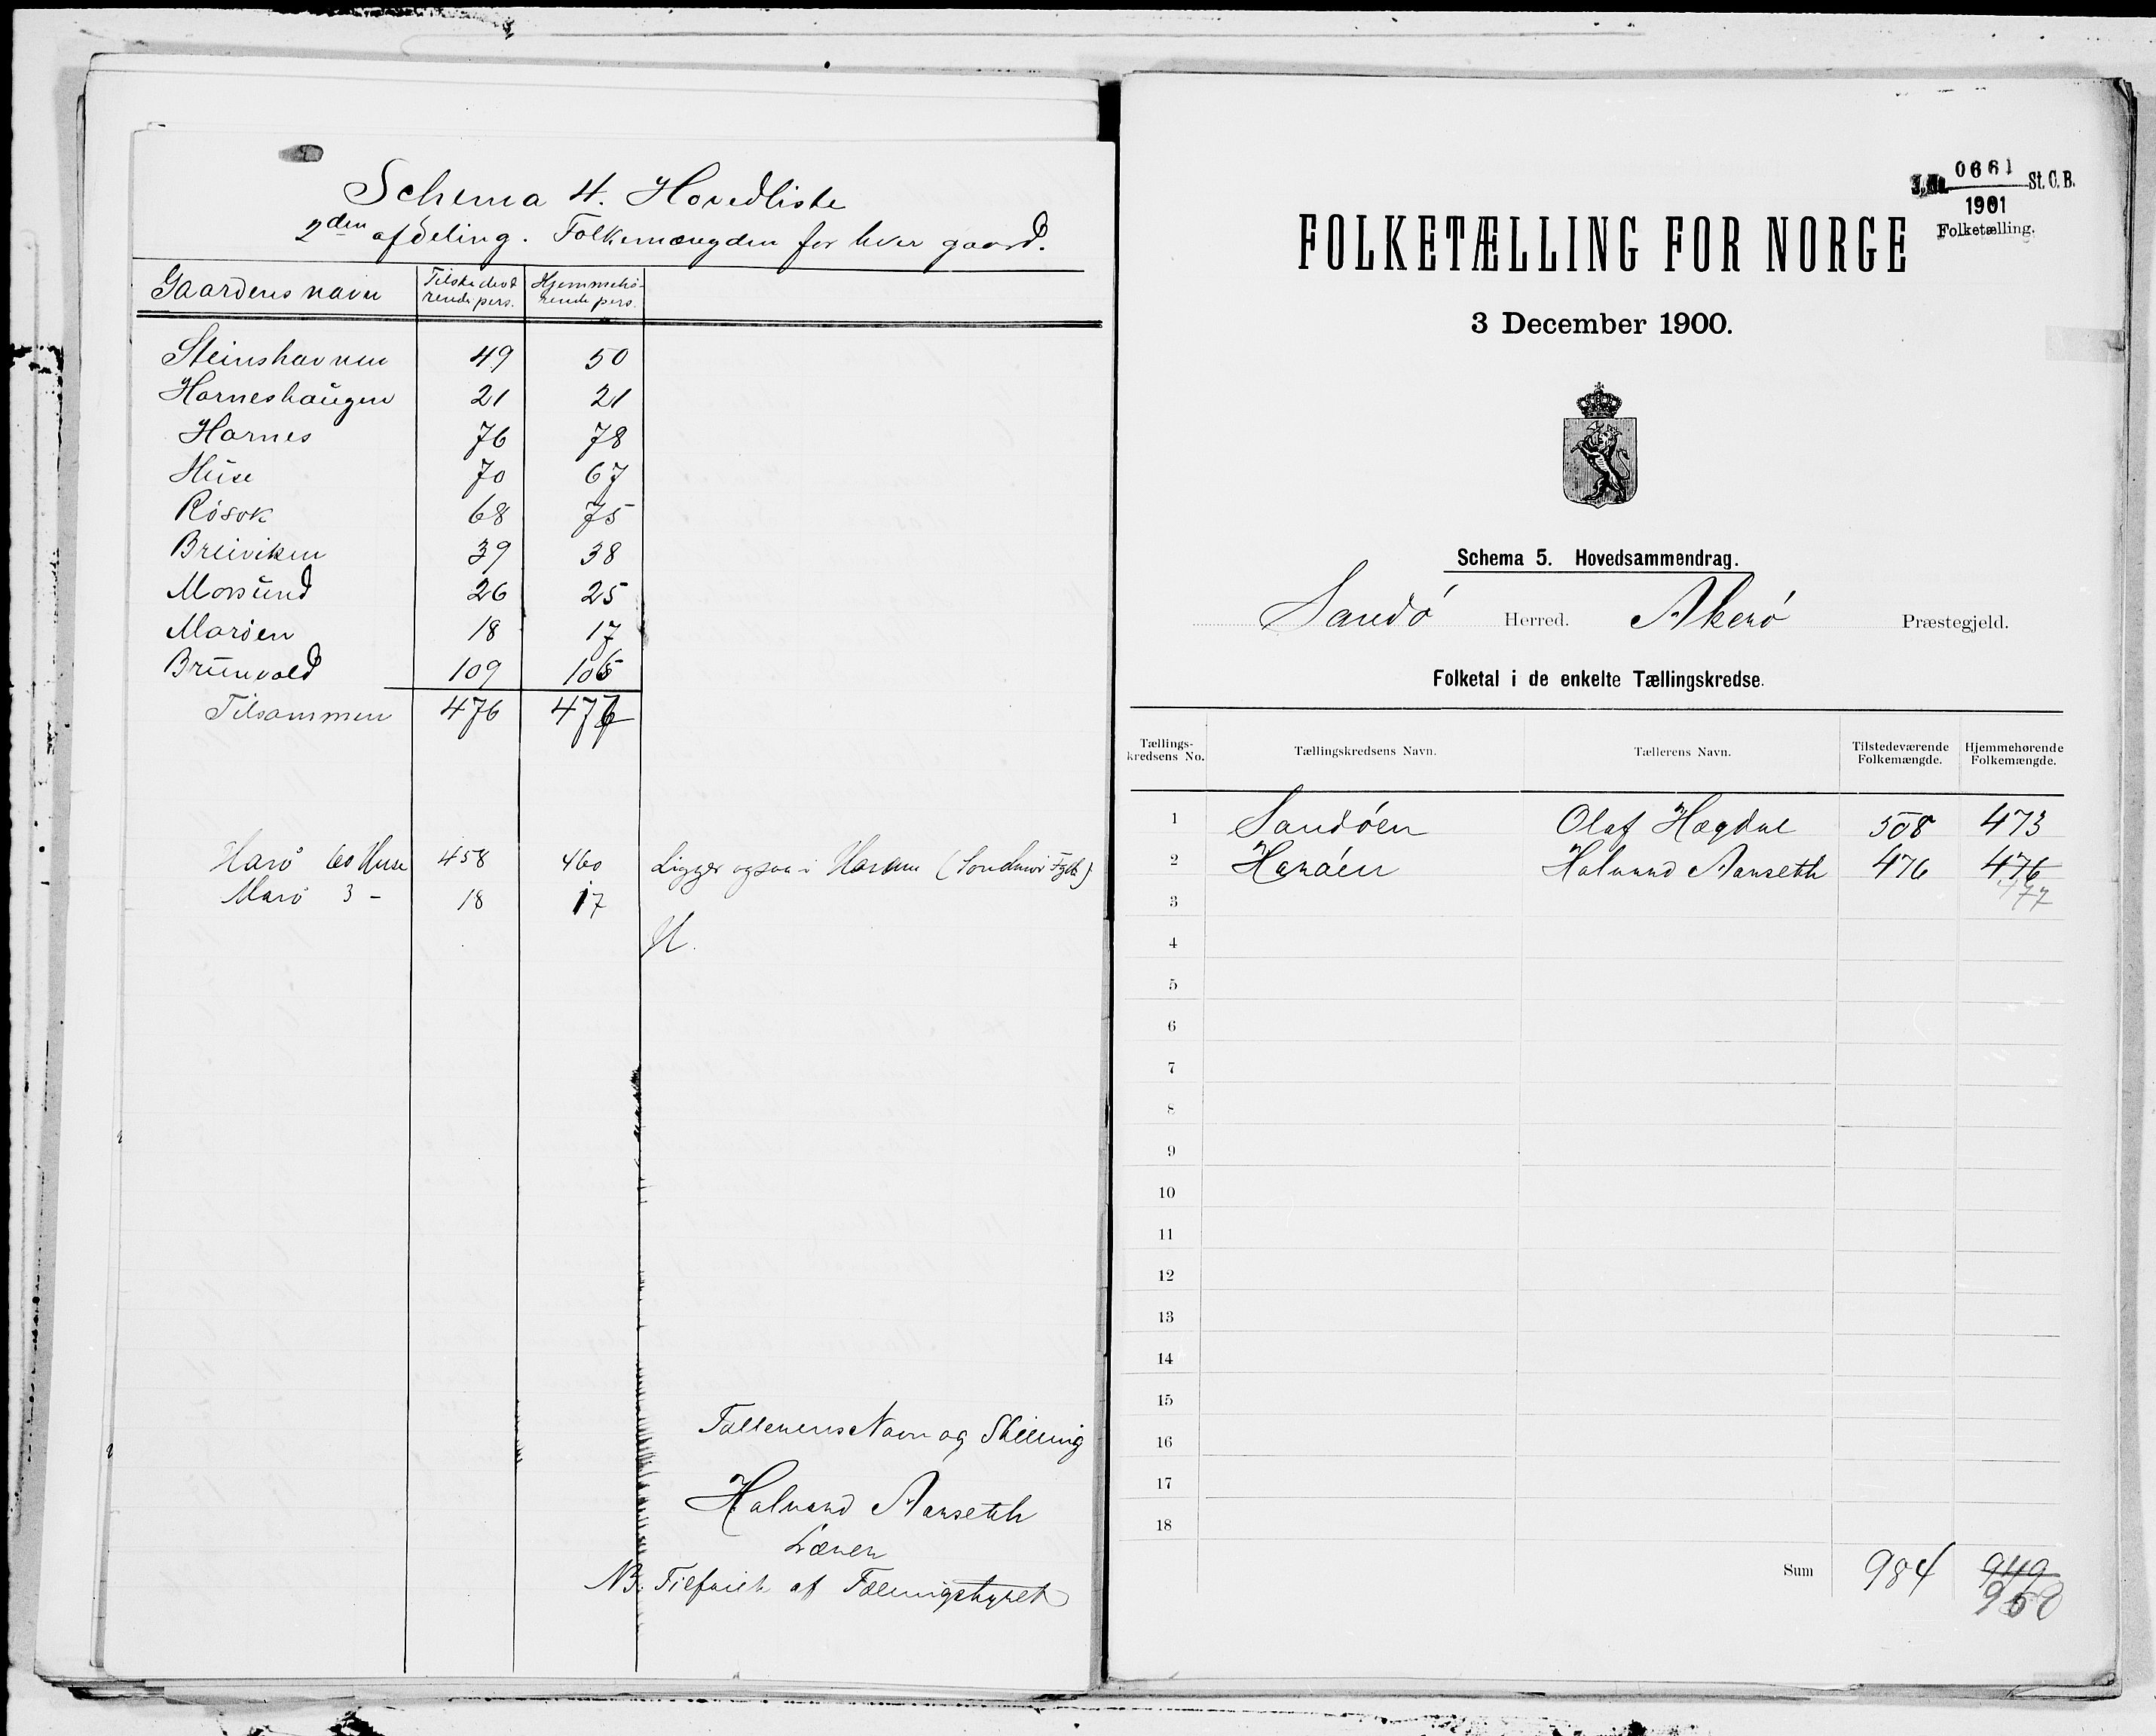 Schema 4. Hovedliste
2den afdeling. Folkemængden for hver gaard.
Gaardens navn Tilstedevæ- Hjemmehø-
rende pers. rende pers.
Steinshavnen 49 50
Harneshaugen 21 21
Harnes 76 78
Huse 70 67
Røsok 68 75
Breiviken 39 38
Morsund 26 25
Marøen 18 17
Brunvold 109 106
Tilsammen 476 477
Harø 60 Huse 458 460 Ligger ogsaa i Haram (Søndmør Fgdr.)
Marø 3 - 18 17
H.
Tællerens Navn og Stilling
Halvard Aarseth
Lærer
NB. Tilføiet af Tællingsstyret
J.No. 0661 St. C. B.
1901
Folketælling.
FOLKETÆLLING FOR NORGE
3 December 1900.
Schema 5. Hovedsammendrag.
Sandø Herred. Akerø Præstegjeld.
Folketal i de enkelte Tællingskredse.
Tællings-
kredsens No. Tællingskredsens Navn. Tællerens Navn. Tilstedeværende
Folkemængde. Hjemmehørende
Folkemængde.
1 Sandøen Olaf Hægdal 508 473
2 Harøen Halvard Aarseth 476 476
477
3
4
5
6
7
8
9
10
11
12
13
14
15
16
17
18
Sum 984 949
950